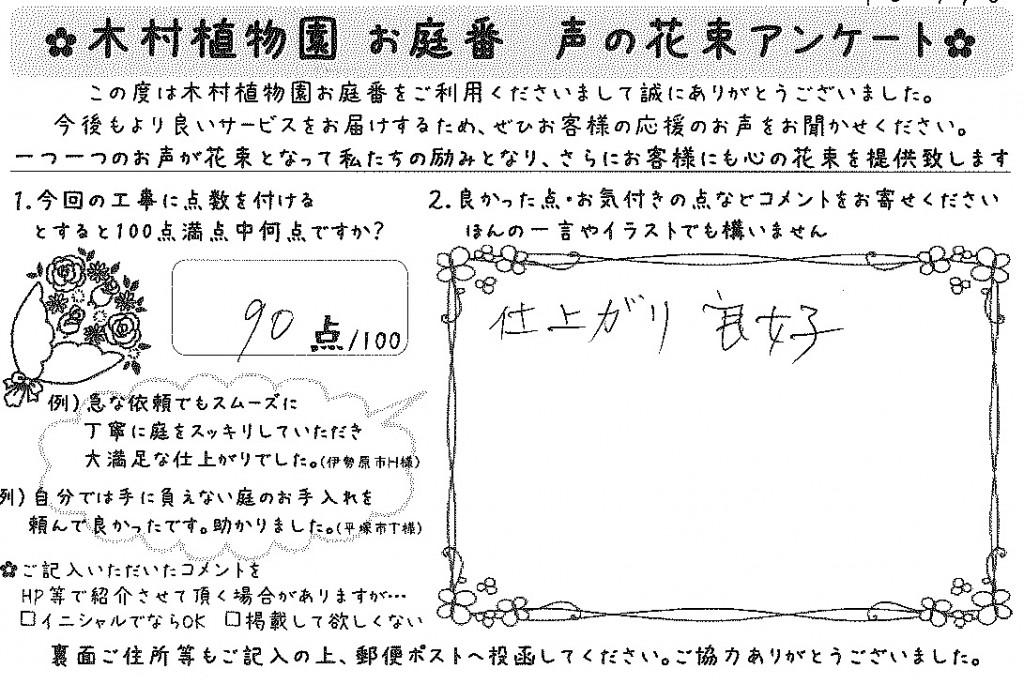 ✿木村植物園 お庭番 声の花束アンケート✿
この度は木村植物園お庭番をご利用くださいまして誠にありがとうございました。
今後もより良いサービスをお届けするため、ぜひお客様の応援のお声をお聞かせください。
一つ一つのお声が花束となって私たちの励みとなり、さらにお客様にも心の花束を提供致します
1.今回の工事に点数を付ける
とすると100点満点中何点ですか?
90 点/100
例)急な依頼でもスムーズに
丁寧に庭をスッキリしていただき
大満足な仕上がりでした。(伊勢原市H様)
例)自分では手に負えない庭のお手入れを
頼んで良かったです。助かりました。(平塚市T様)
✿ご記入いただいたコメントを
HP等で紹介させて頂く場合がありますが…
□イニシャルでならOK □掲載して欲しくない
2.良かった点・お気付きの点などコメントをお寄せください
ほんの一言やイラストでも構いません
仕上がり 良好
裏面ご住所等もご記入の上、郵便ポストへ投函してください。ご協力ありがとうございました。